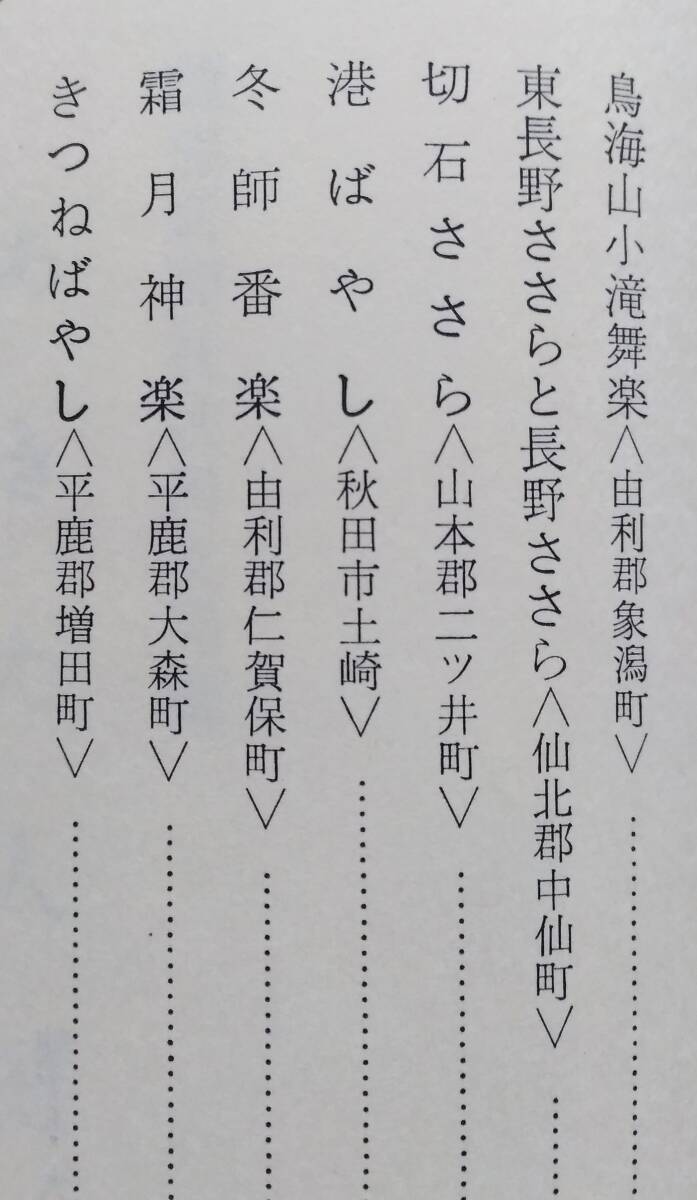 鳥海山小滝舞楽〈由利郡象潟町〉…………
東長野ささらと長野ささら〈仙北郡中仙町〉……
切石ささら〈山本郡二ツ井町〉…………
港ばやし〈秋田市土崎〉…………
冬師番楽〈由利郡仁賀保町〉…………
霜月神楽〈平鹿郡大森町〉…………
きつねばやし〈平鹿郡増田町〉…………